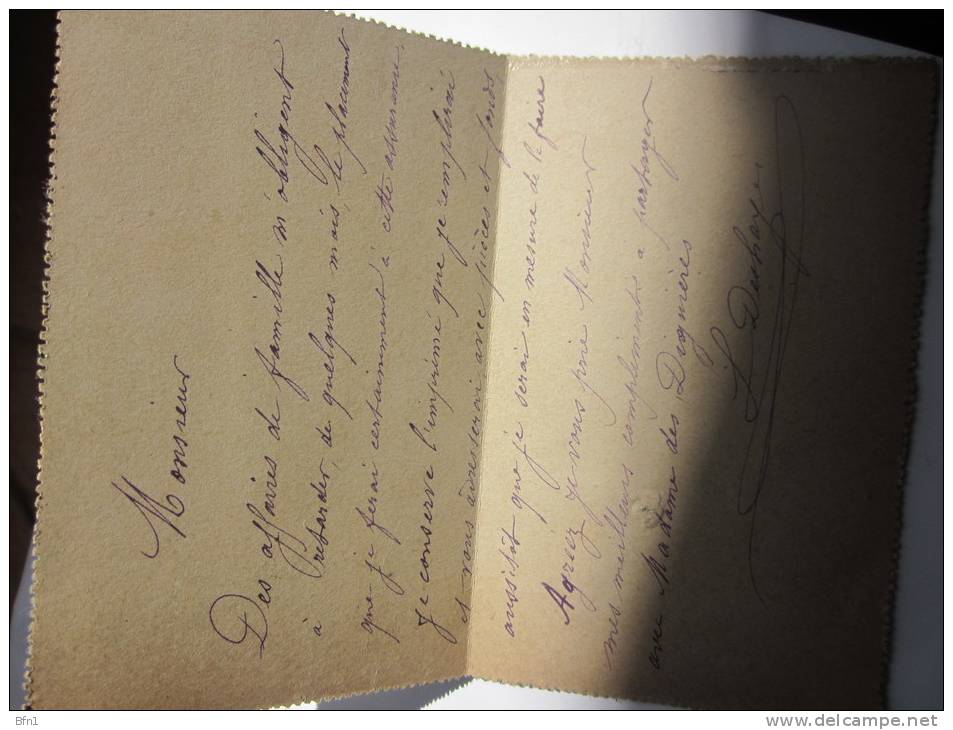 Monsieur
Des affaires de famille m'obligent
à retarder, de quelques mois, le placement
que je ferai certainement à cette assurance,
Je conserve l'imprimé que je remplirai
et vous adresserai avec pièces et fonds,
aussitôt que je serai en mesure de le faire
Agréez je vous prie Monsieur
mes meilleurs compliments à partager
avec Madame des Diguières
Deshayes
Bfn1
www.delcampe.net